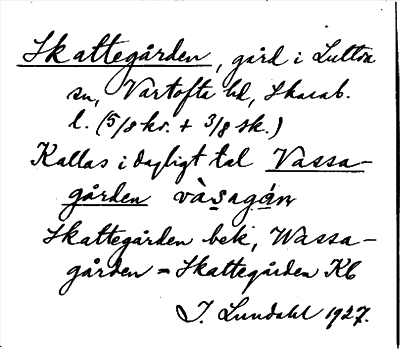 Skattegården, gård i Luttra
sn, Vartofta hd, Skarab.
l. (5/8 kr. + 3/8 sk.)
Kallas i dagligt tal Vassa-
gården vàsagán
Skattegården bek, Wassa-
gården = Skattegården Kb
I. Lundahl 1927.